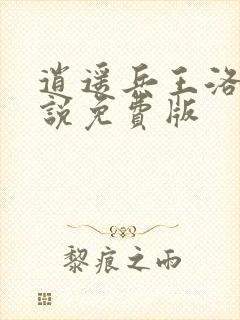 逍遥兵王洛
說免費版
黎痕之雨